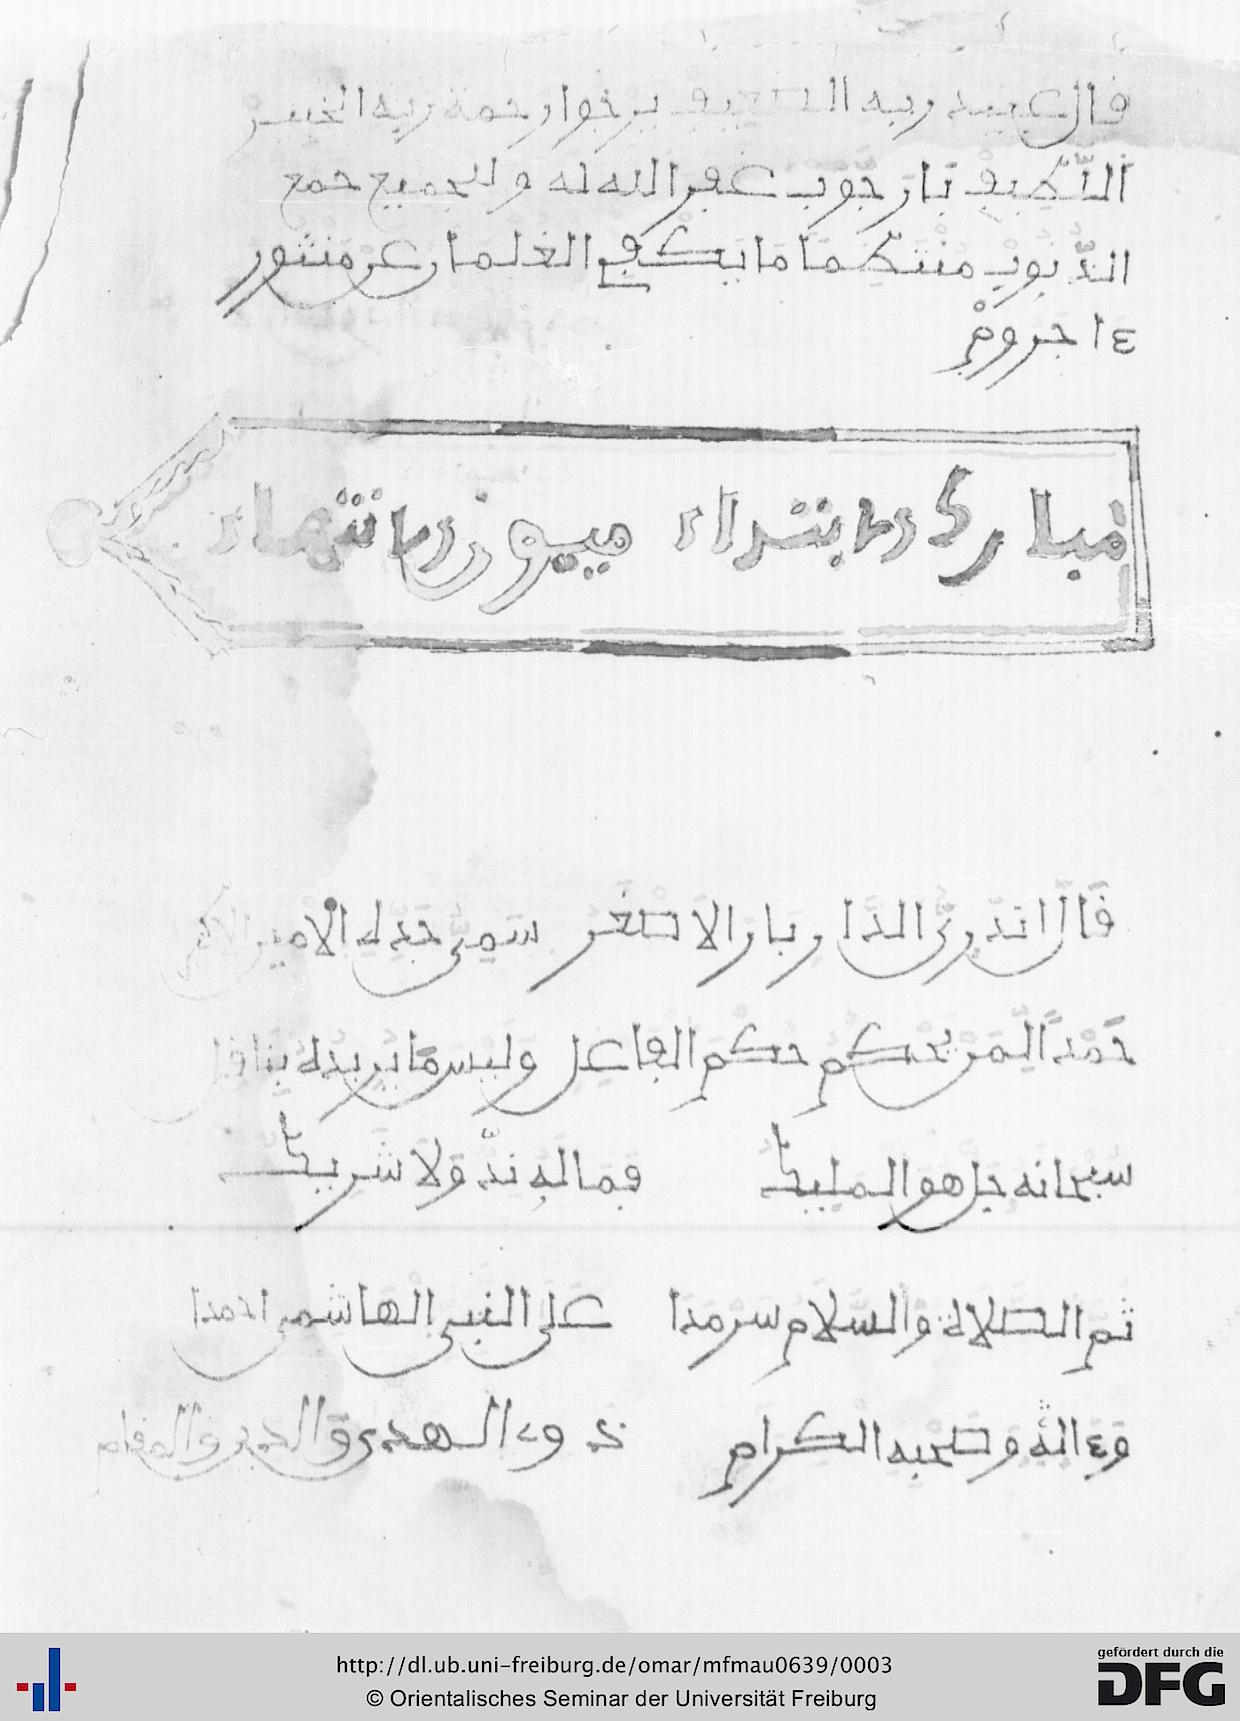 قال عبيد ربه الضعيف يرجوا رحمة ربه الخبير
اللَّطيف بَارَ جُّوبْ غفر الله له وللجميع جمع
الذُّنُوبْ مُنْتَظِمًا مَا يَكْفِي الغلمان عَنْ مَنْثُورِ
ءاجروم
مبارك الابتداء ميمون الانتهاء
قَالَ انَدَّرِيُّ الدَّارِ بَارَ الاصْغَر سَمِيُّ جَدِّهِ الْأَمِيرِ الاكبر
حَمْدًا لِمَنْ يَحْكُم حُكْمَ الفَاعِل وَلَيْسَ مَا يُرِيدُهُ بِنَاقل
سبحانه جل هو المليك فما له نِدٌّ وَلاَ شَرِيك
ثم الصلاة والسلام سرمدا على النبي الهاشمي احمدا
وَءَالِهِ وَصَحْبِه الكرام ذوي الهدى والدين والمقام
http://dl.ub.uni-freiburg.de/omar/mfmau0639/0003
© Orientalisches Seminar der Universität Freiburg
gefördert durch die
DFG